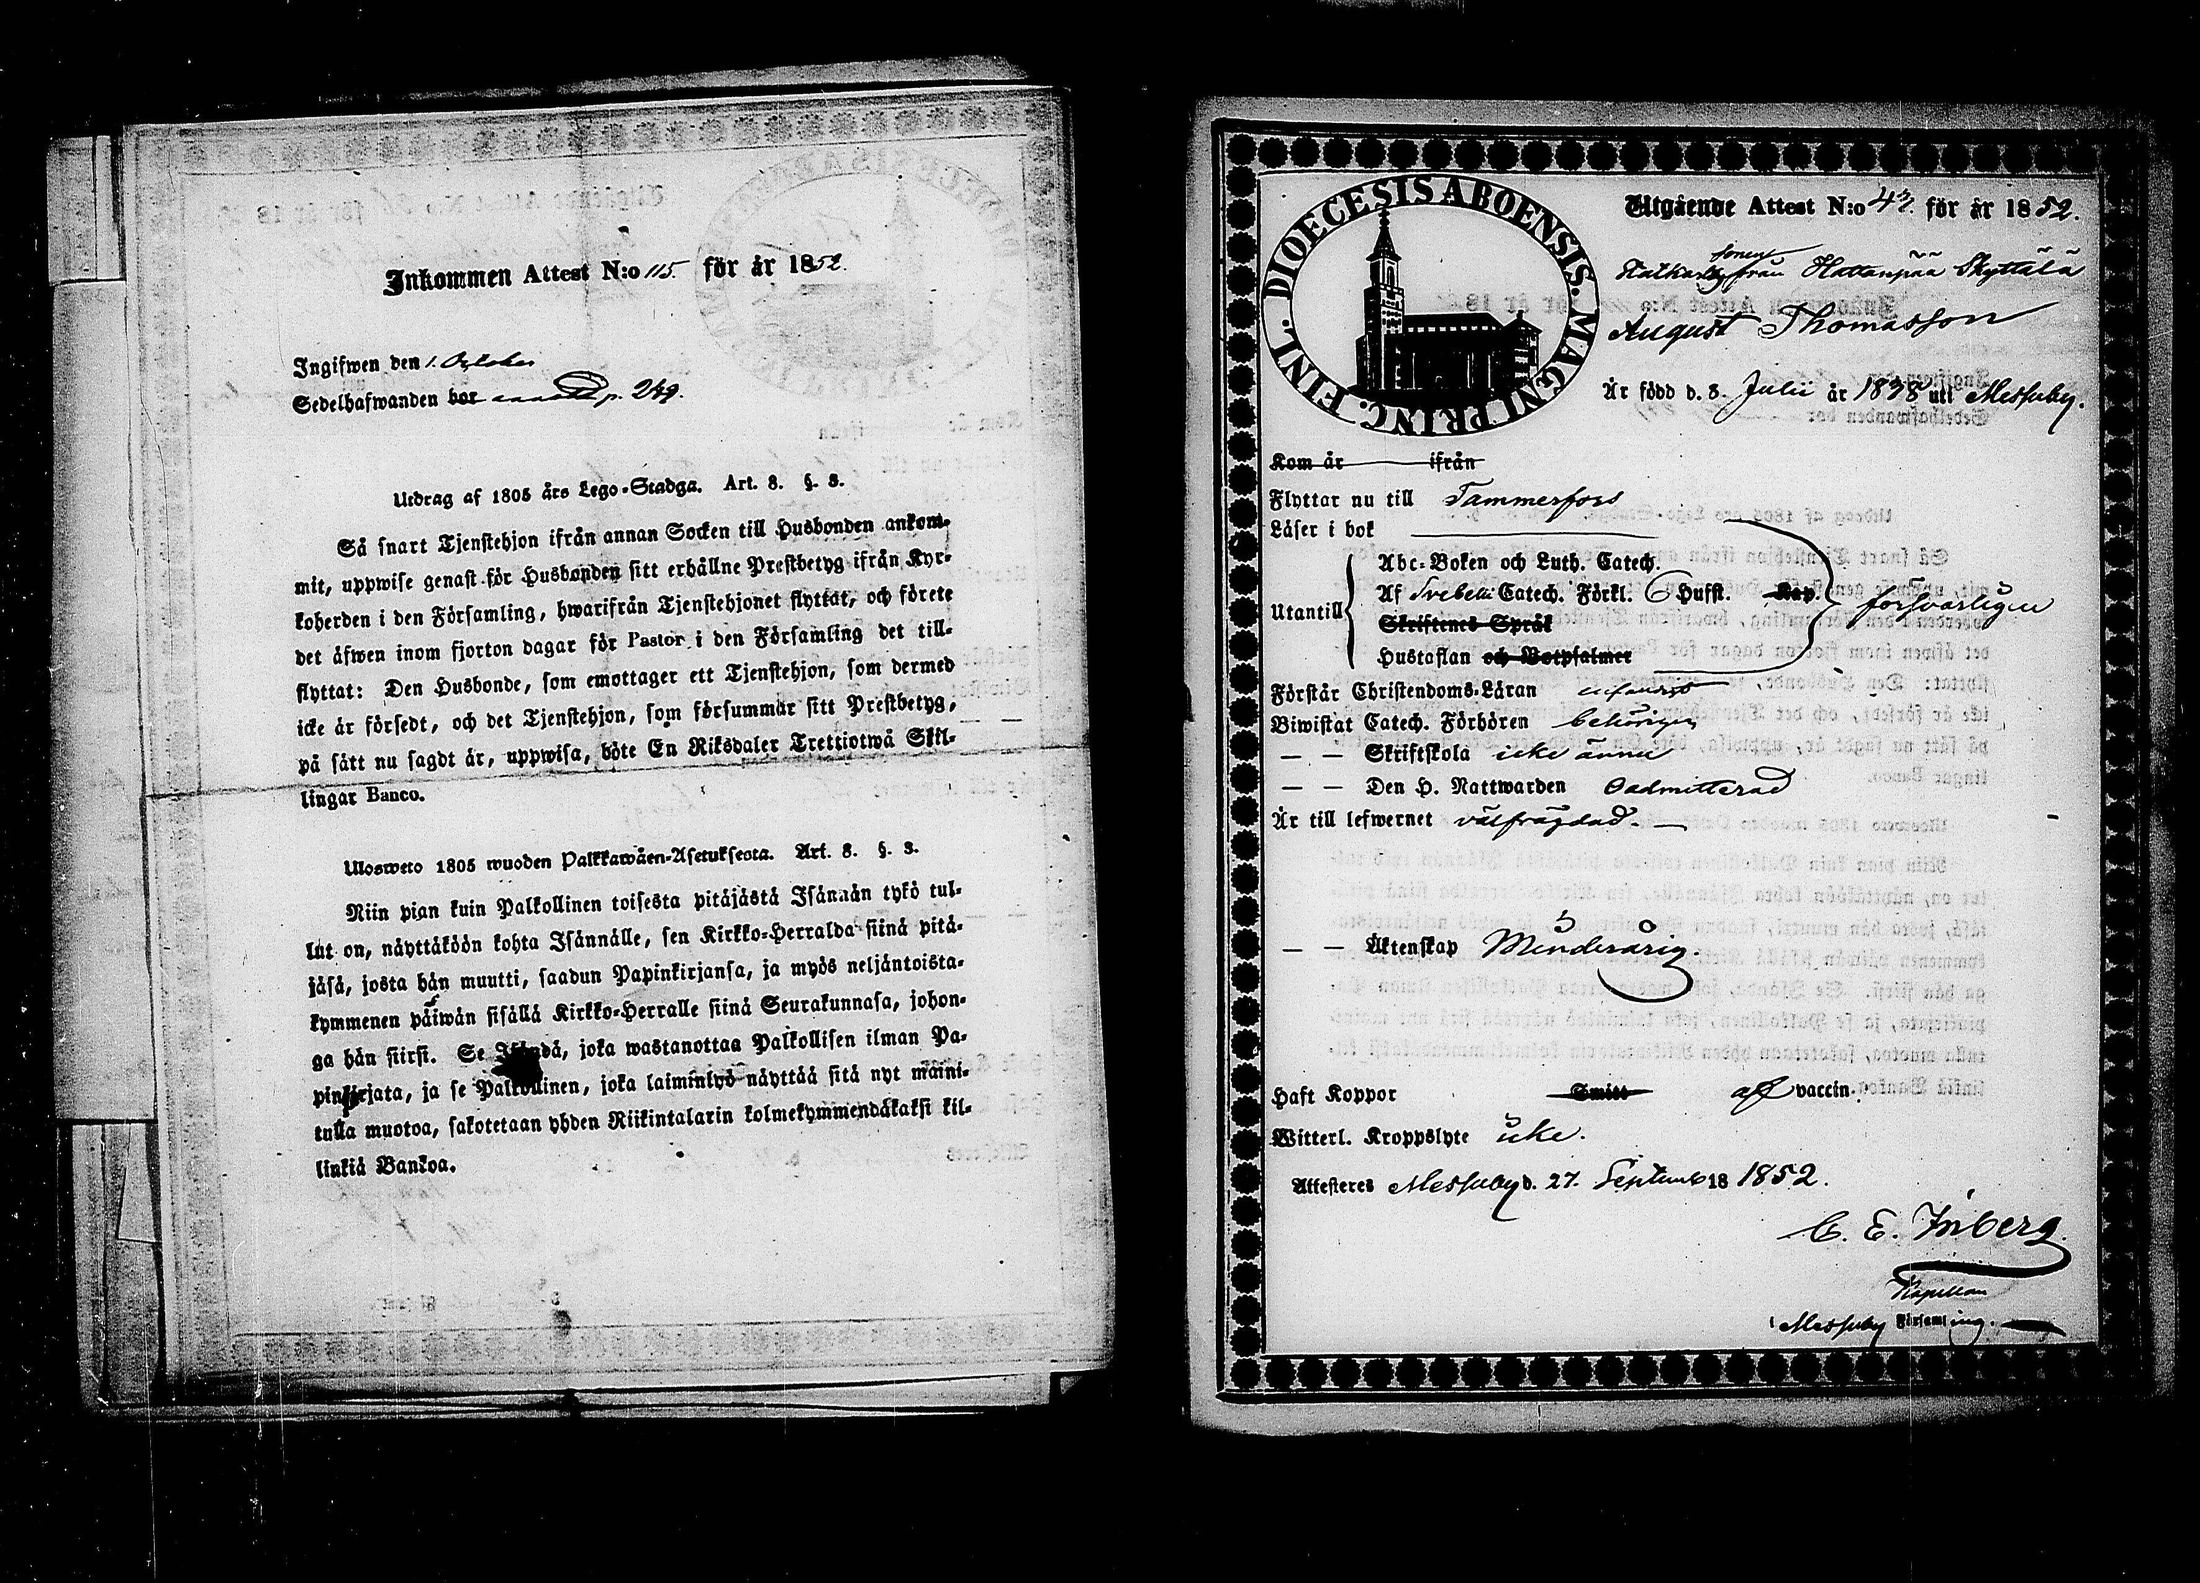 Inkommen Attest N:o 115. för år 1852.
Ingifwen den 1. October
Sedelhafwanden bor p. 249.
Utdrag af 1805 års Lego-Stadga. Art. 8. §. 3.
Så snart Tjenstehjon ifrån annan Socken till Husbonden ankom-
mit, uppwise genast för Husbonden sitt erhållne Prestbetyg ifrån Kyr-
koherden i den Församling, hwarifrån Tjenstehjonet flyttat, och förete
det äfwen inom fjorton dagar för Pastor i den Församling det till-
flyttat: Den Husbonde, som emottager ett Tjenstehjon, som dermed
icke är försedt, och det Tjenstehjon, som försummar sitt Prestbetyg,
på sätt nu sagdt är, uppwisa, böte En Riksdaler Trettiotwå Skil-
lingar Banco.
Ulosweto 1805 wuoden Palkkawäen-Asetuksesta. Art. 8. §. 3.
Niin pian kuin Palkollinen toisesta pitäjästä Isännän tykö tul-
lut on, näyttäköön kohta Isännälle, sen Kirkko-Herralda siinä pitä-
jäsä, josta hän muutti, saadun Papinkirjansa, ja myös neljäntoista-
kymmenen päiwän sisällä Kirkko-Herralle siinä Seurakunnasa, johon-
ga hän siirsi. Se Isändä, joka wastanottaa Palkollisen ilman Pa-
pinkirjata, ja se Palkollinen, joka laiminlyö näyttää sitä nyt maini-
tulla muotoa, sakotetaan yhden Riikintalarin kolmekymmendäkaksi kil-
linkiä Bankoa.
DIOECESIS ABOENSIS. MAGNI PRINC. FINL.
Utgående Attest N:o 47. för år 1852.
sonen
ifrån Hattanpää Skyttälä
August Thomasson
Är född d. 8. Julii år 1838 uti Messuby.
Kom år ifrån
Flyttar nu till Tammerfors
Läser i bok
Abc-Boken och Luth. Catech.
Utantill Af Svebelii Catech. Förkl. Hufst. Kap. försvarligen
Skriftenes Språk
Hustaflan och Botpsalmer
Förstår Christendoms-Läran
Biwistat Catech. Förhören behörigen
— — Skriftskola icke ännu
— — Den H. Nattwarden Oadmitterad
Är till lefwernet välfrägdad. —
— — Äktenskap Minderårig.
Haft Koppor Smitt af vaccin.
Witterl. Kroppslyte icke.
Attesteres Messuby d. 27. Septemb 18 1852.
C. E. Inberg.
Kapellan
i Messuby Församling.